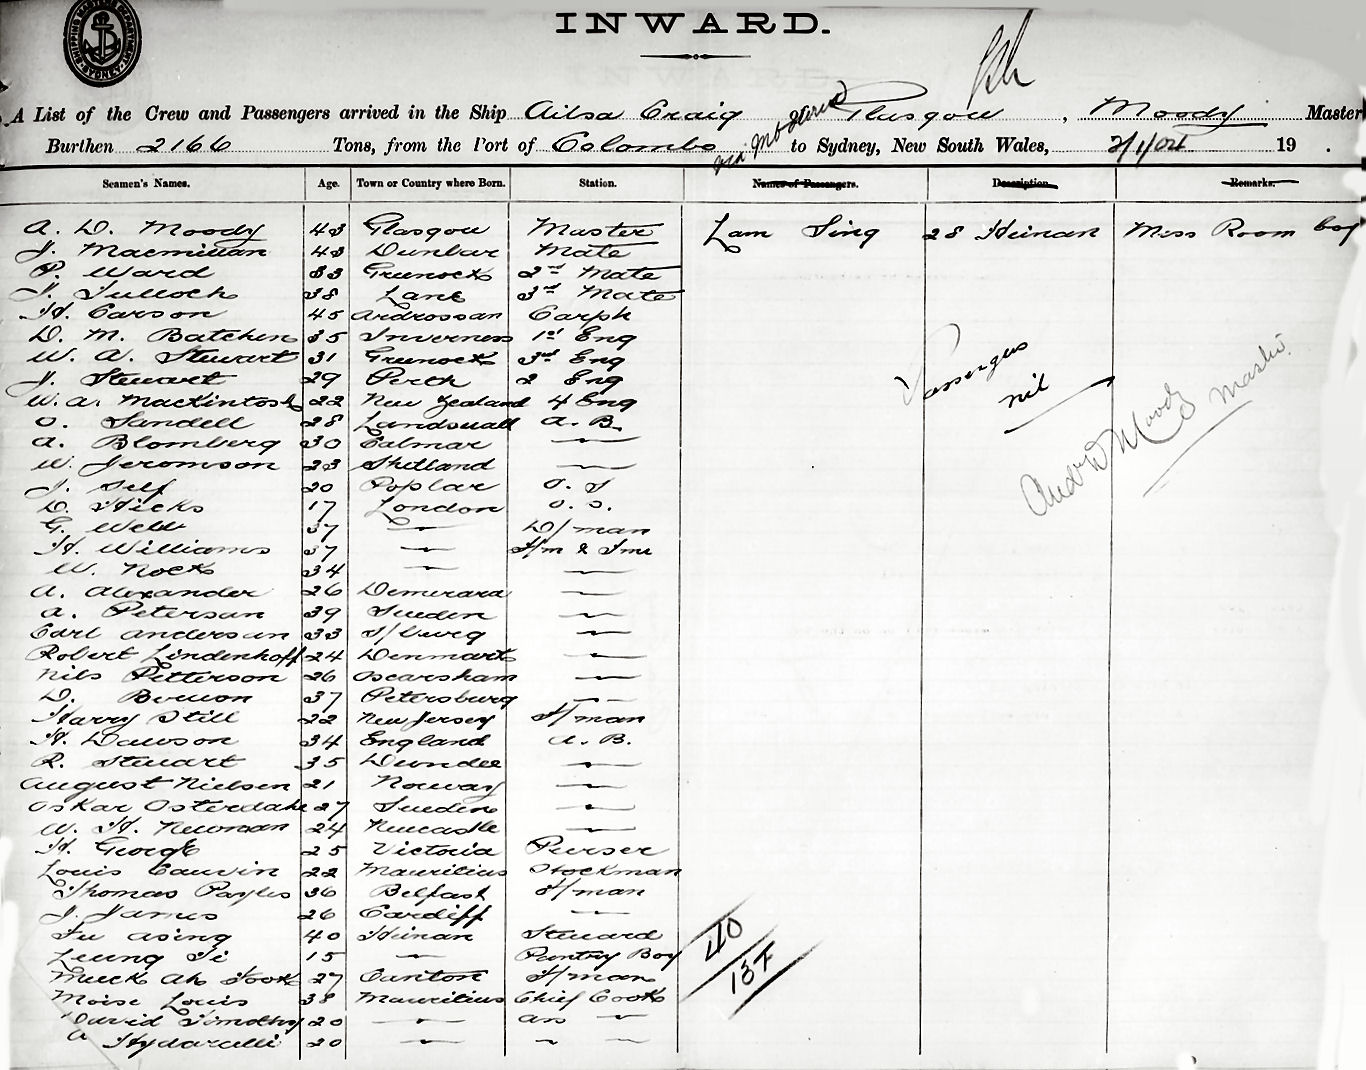 SHIPPING MASTERS DEPARTMENT SYDNEY
INWARD.
A List of the Crew and Passengers arrived in the Ship Ailsa Craig of Glasgow, Moody Master
Burthen 2166 Tons, from the Port of Colombo via to Sydney, New South Wales, 2/1/04 19 .
Seamen's Names. Age. Town or Country where Born. Station. Names of Passengers. Description. Remarks.
A. D. Moody 43 Glasgow Master Lam Sing 28 Heinan Mess Room boy
J. Macmillan 43 Dunbar Mate
P. Ward 33 Greenock 2nd Mate
J. Tulloch 38 Lane 3rd Mate
H. Carson 45 Ardrossan Carph
D. M. Batchen 35 Inverness 1st Eng
W. A. Stewart 31 Greenock 3rd Eng
J. Stewart 29 Perth 2 Eng
W. A. MacKintosh 22 New Zealand 4 Eng
O. Sandell 28 A. B.
A. Blomberg 30 Calmar "
W. Jeromson 23 Shetland "
J. Self 20 Poplar O. S
D. Hicks 17 London O. S.
G. Webb 37 " D/man
H. Williams 37 " "
W. Nock 34 " "
A. Alexander 26 Demerara "
A. Peterson 39 Sweden "
Carl Anderson 33 "
Robert Lindenhoff 24 Denmark "
Nils Petterson 26 Oscarsham "
D. 37 Petersburg "
Harry Still 22 New Jersey F/man
H. Dawson 34 England A. B.
R. Stewart 35 Dundee "
August Nielsen 21 Norway "
Oskar Osterdahl 27 Sweden "
W. H. Newman 24 Newcastle "
H. George 25 Victoria Purser
Louis Cauvin 22 Mauritius Stockman
Thomas 36 Belfast F/man
J. James 26 Cardiff "
Fu Asing 40 Heinan Steward
Leung Si 15 " Pantry Boy
Ah Fook 27 Canton F/man
Moise Louis 38 Mauritius Chief Cook
David Timothy 20 " ass "
A Hydaralli 20 " " "
Passengers
nil
And D Moody Master
40
13 F